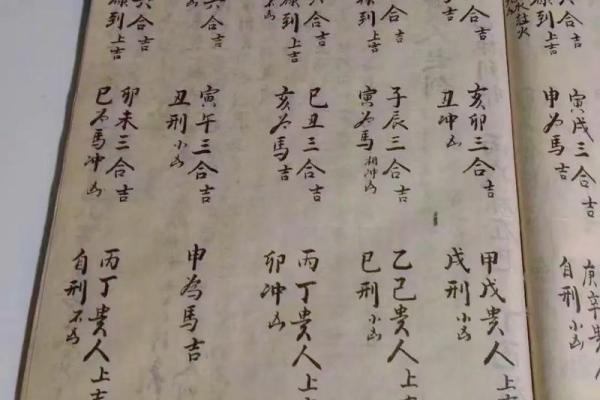 六合吉
祿到上吉
合吉
吉
三合吉
祿到上吉
合吉
吉
合吉
六合吉
祿到上吉
寅戌三合吉
申为馬吉
亥卯三合吉
丑冲凶
子辰三合吉
寅为馬相冲凶
巳丑三合吉
亥为馬吉
寅午三合吉
丑刑小凶
卯未三合吉
巳为馬冲凶
庚辛貴
自刑小凶
甲戊貴人上吉
戌刑小凶
乙己貴人上吉
巳刑小凶
丙丁貴人上
卯冲凶
申為馬吉
丙丁貴人上吉
自刑不凶